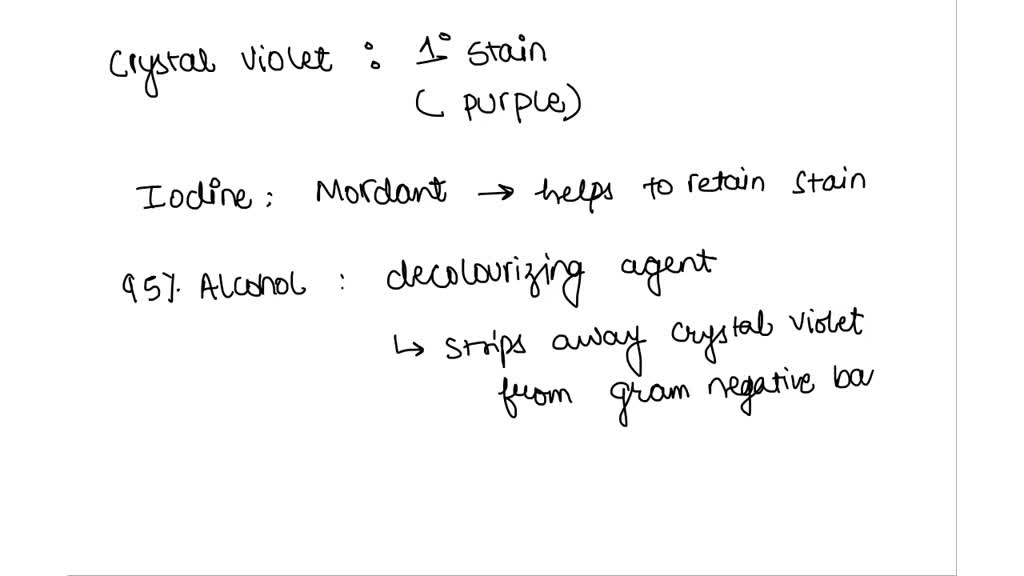 Crystal violet : 1° stain
( purple)
Iodine : Mordant → helps to retain stain
95% Alcohol : decolourizing agent
↳ strips away crystal violet
from gram negative ba